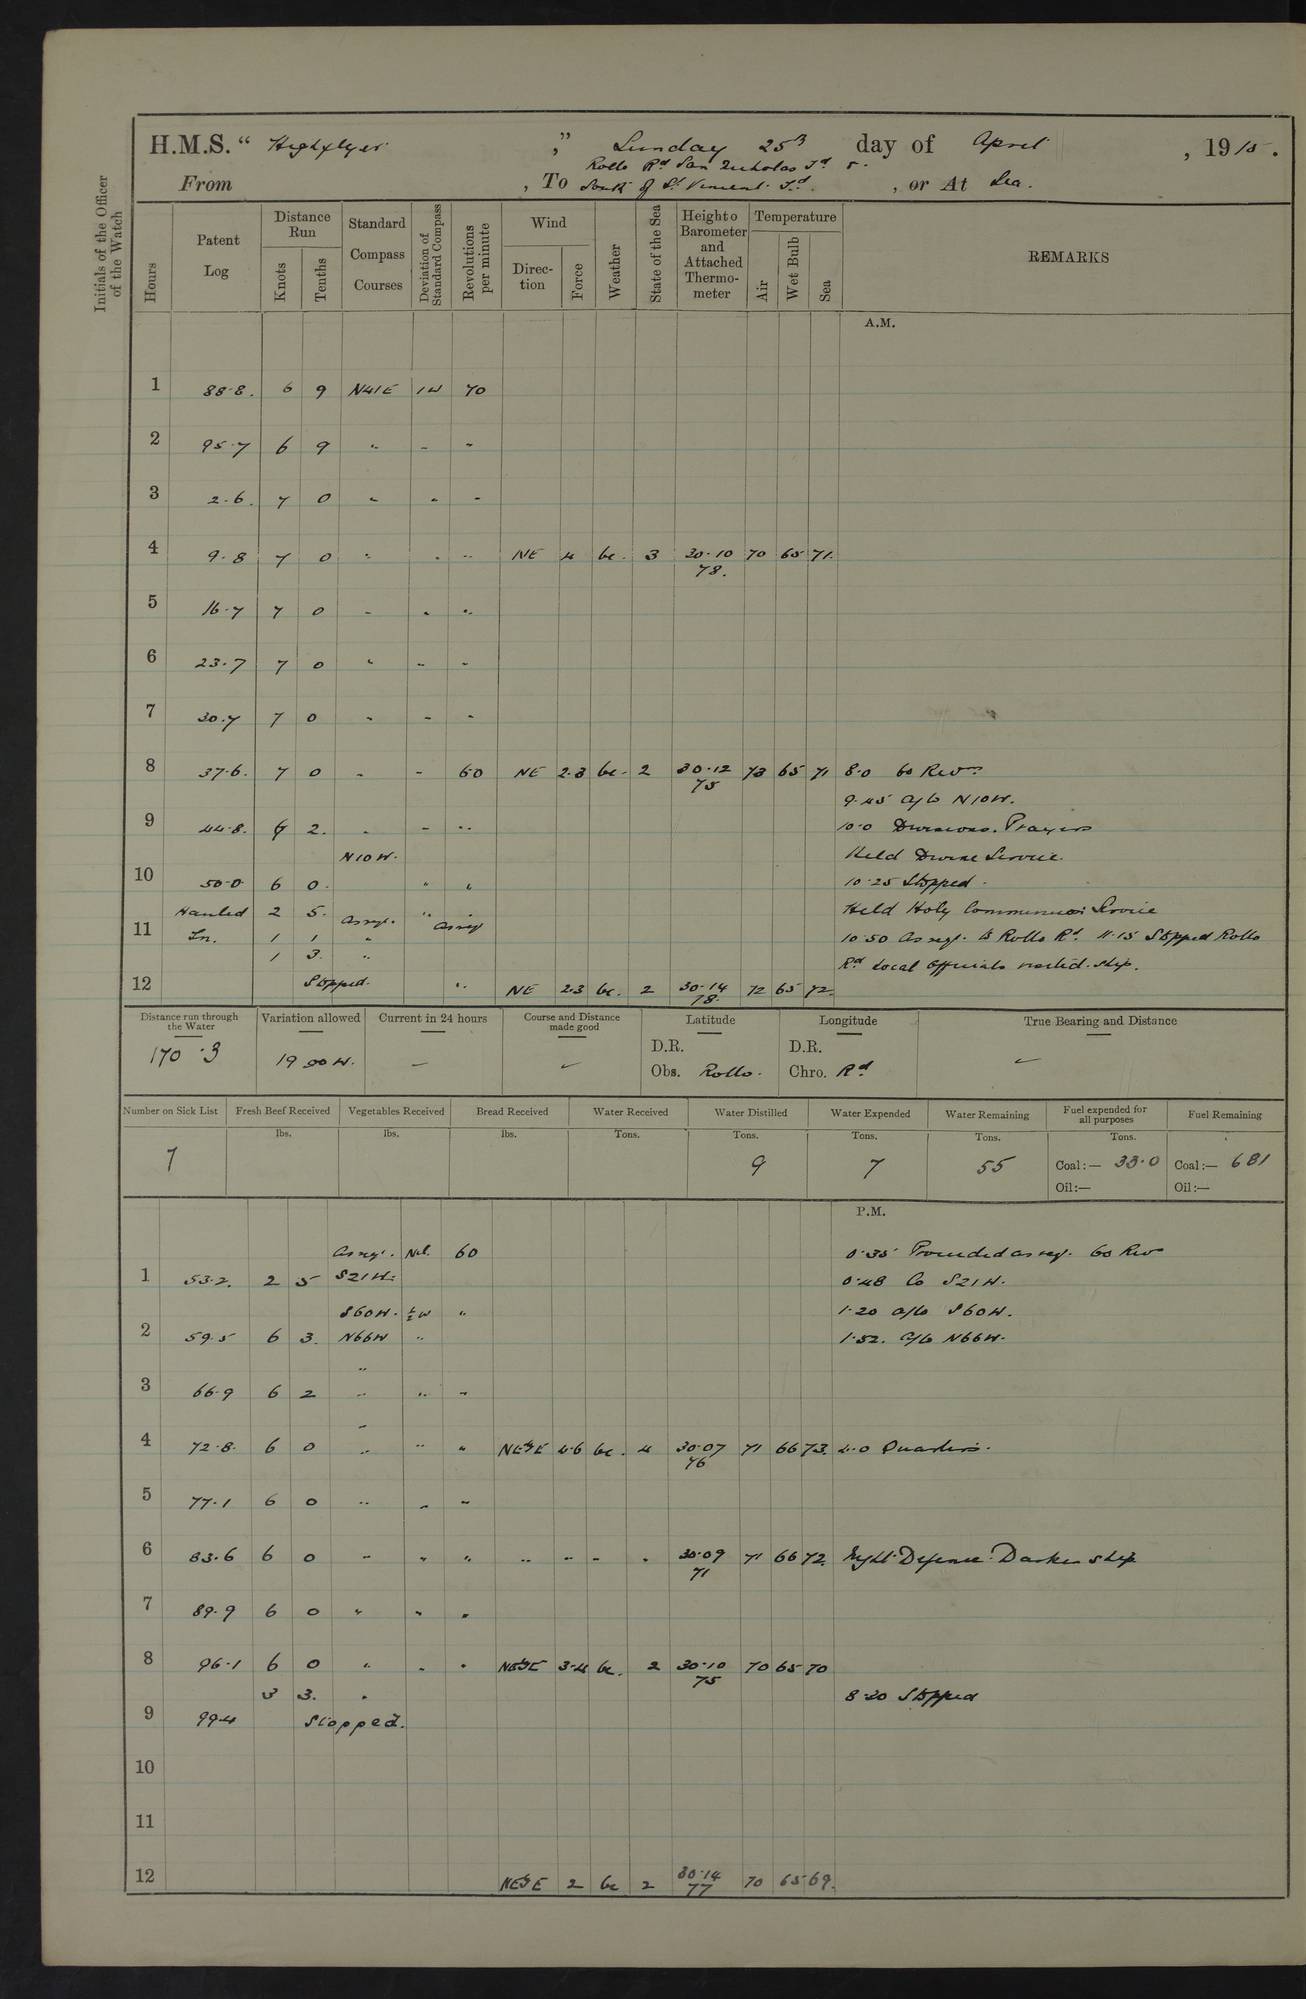 H.M.S. " Highflyer " Sunday 25th day of April , 1915.
Rollo Rd San Nicholas Id &
From , To South of St Vincent Id. , or At Sea.
Initials of the Officer of the Watch
Hours Patent Log Distance Run Knots Tenths Standard Compass Courses Deviation of Standard Compass Revolutions per minute Wind Direction Force Weather State of the Sea Height o Barometer and Attached Thermometer Temperature Air Wet Bulb Sea REMARKS
A.M.
1 88.8. 6 9 N41E 1W 70
2 95.7 6 9 " - "
3 2.6. 7 0 " " "
4 9.8 7 0 " " " NE 4 bc. 3 30.10 70 65 71.
78.
5 16.7 7 0 " " "
6 23.7 7 0 " " "
7 30.7 7 0 " - "
8 37.6. 7 0 " - 60 NE 2.3 bc. 2 30.12 73 65 71 8.0 60 Revns
75
9.45 a/c N10W.
9 44.8. 6 2. " - " 10.0 Divisions. Prayers
N10W. Held Divine Service.
10 50.0 6 0. " " 10.25 Stopped.
Hauled 2 5. As reqt. " As req Held Holy Communion Service
11 In. 1 1 " 10.50 As reqt. to Rollo Rd. 11.15 Stopped Rollo
1 3. " Rd Local Officials visited ship.
12 Stopped. " NE 2.3 bc. 2 30.14 72 65 72.
78.
Distance run through the Water Variation allowed Current in 24 hours Course and Distance made good Latitude Longitude True Bearing and Distance
170.3 19 00 W. D.R. D.R.
Obs. Rollo. Chro. Rd
Number on Sick List Fresh Beef Received Vegetables Received Bread Received Water Received Water Distilled Water Expended Water Remaining Fuel expended for all purposes Fuel Remaining
lbs. lbs. lbs. Tons. Tons. Tons. Tons. Tons.
7 9 7 55 Coal:— 33.0 Coal:— 681
Oil:— Oil:—
P.M.
As reqt. Nil. 60 0.35 Proceeded as req. 60 Rev
1 53.2. 2 5 S21W. 0.48 Co S21W.
S60W. ½W " 1.20 a/c S60W.
2 59.5 6 3. N66W " 1.52. a/c N66W.
"
3 66.9 6 2 " " "
"
4 72.8. 6 0 " " " NEbE 4.6 bc. 4 30.07 71 66 73. 4.0 Quarters.
76
5 77.1 6 0 " " "
6 83.6 6 0 " " " " " - " 30.09 71 66 72. Night Defence. Darken ship
71
7 89.9 6 0 " " "
8 96.1 6 0 " " " NEbE 3.4 bc. 2 30.10 70 65 70
75
3 3. " 8.30 Stopped
9 99.4 Stopped.
10
11
12 NEbE 2 bc 2 30.14 70 65 69.
77